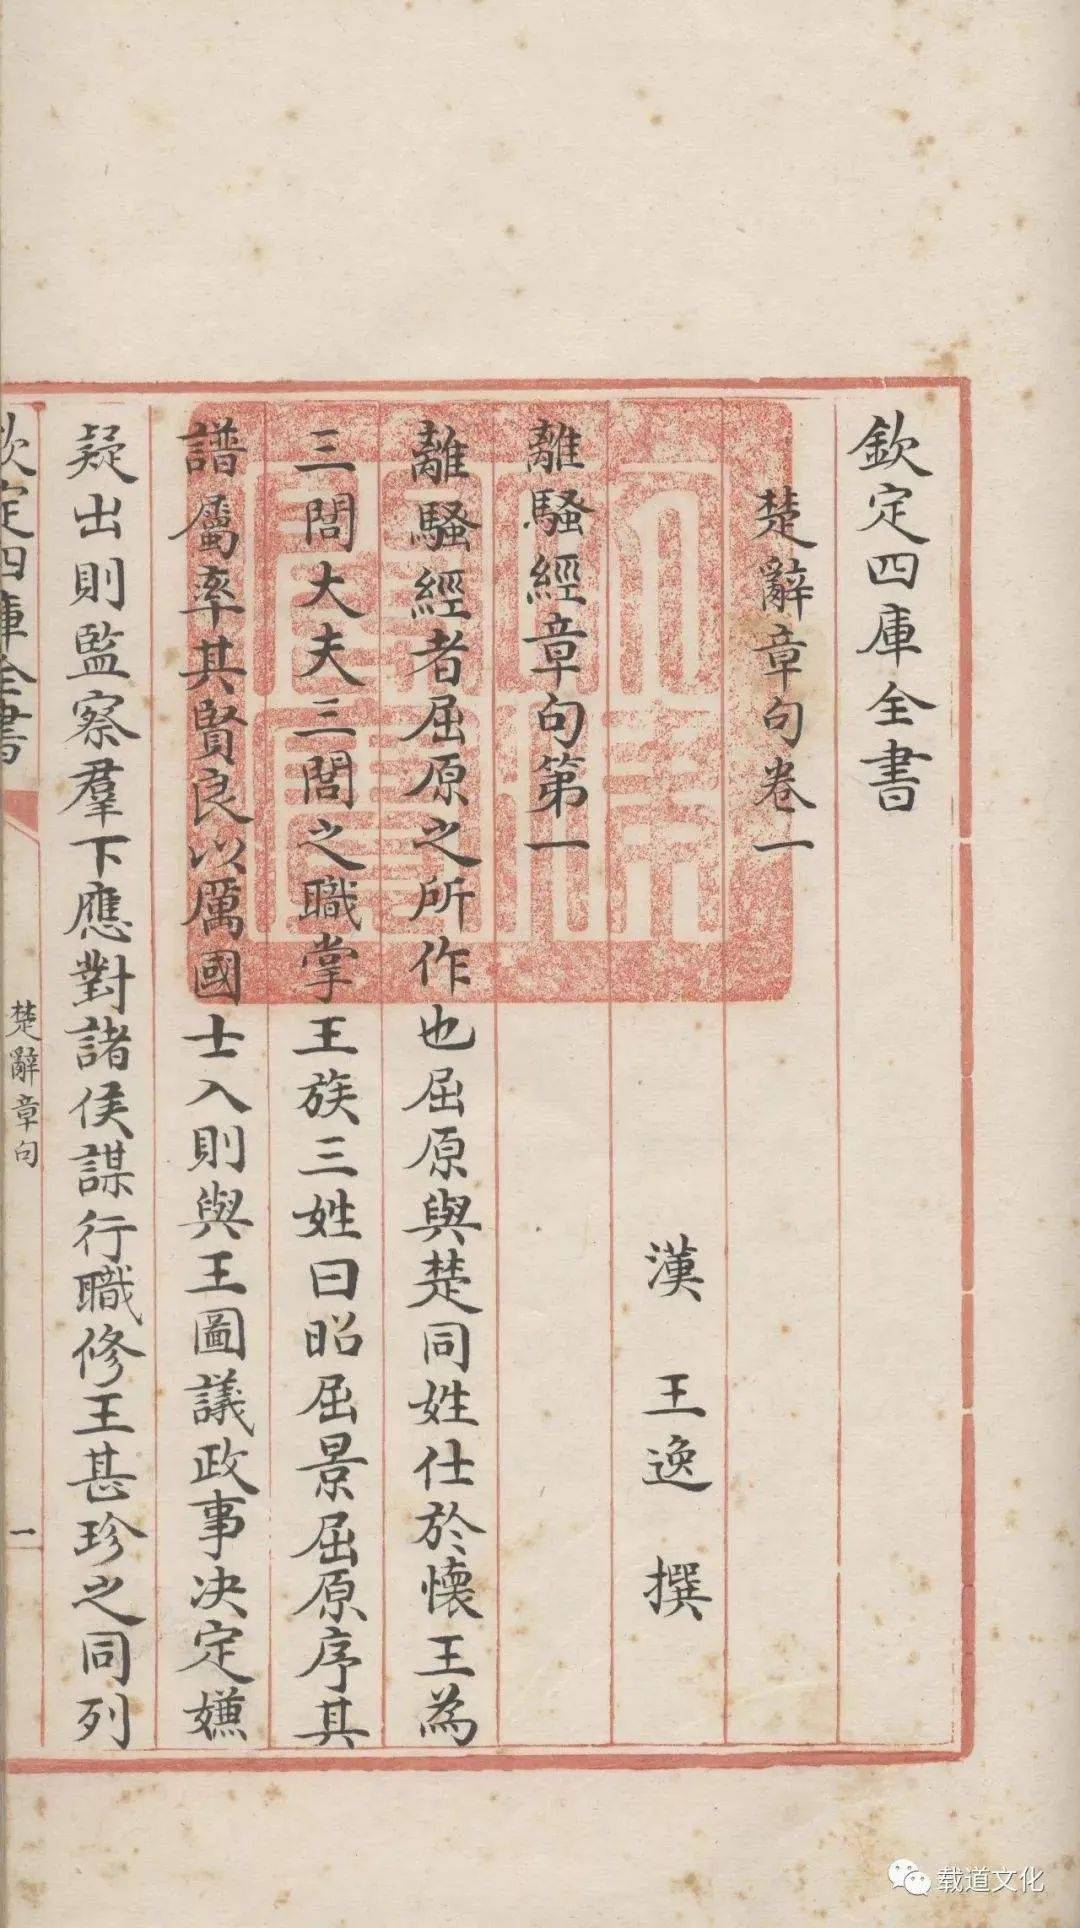 欽定四庫全書
楚辭章句卷一
漢 王逸 撰
離騷經章句第一
離騷經者屈原之所作也屈原與楚同姓仕於懷王為
三閭大夫三閭之職掌王族三姓曰昭屈景屈原序其
譜屬率其賢良以厲國士入則與王圖議政事決定嫌
疑出則監察羣下應對諸侯謀行職修王甚珍之同列
欽定四庫全書
楚辭章句
一
载道文化